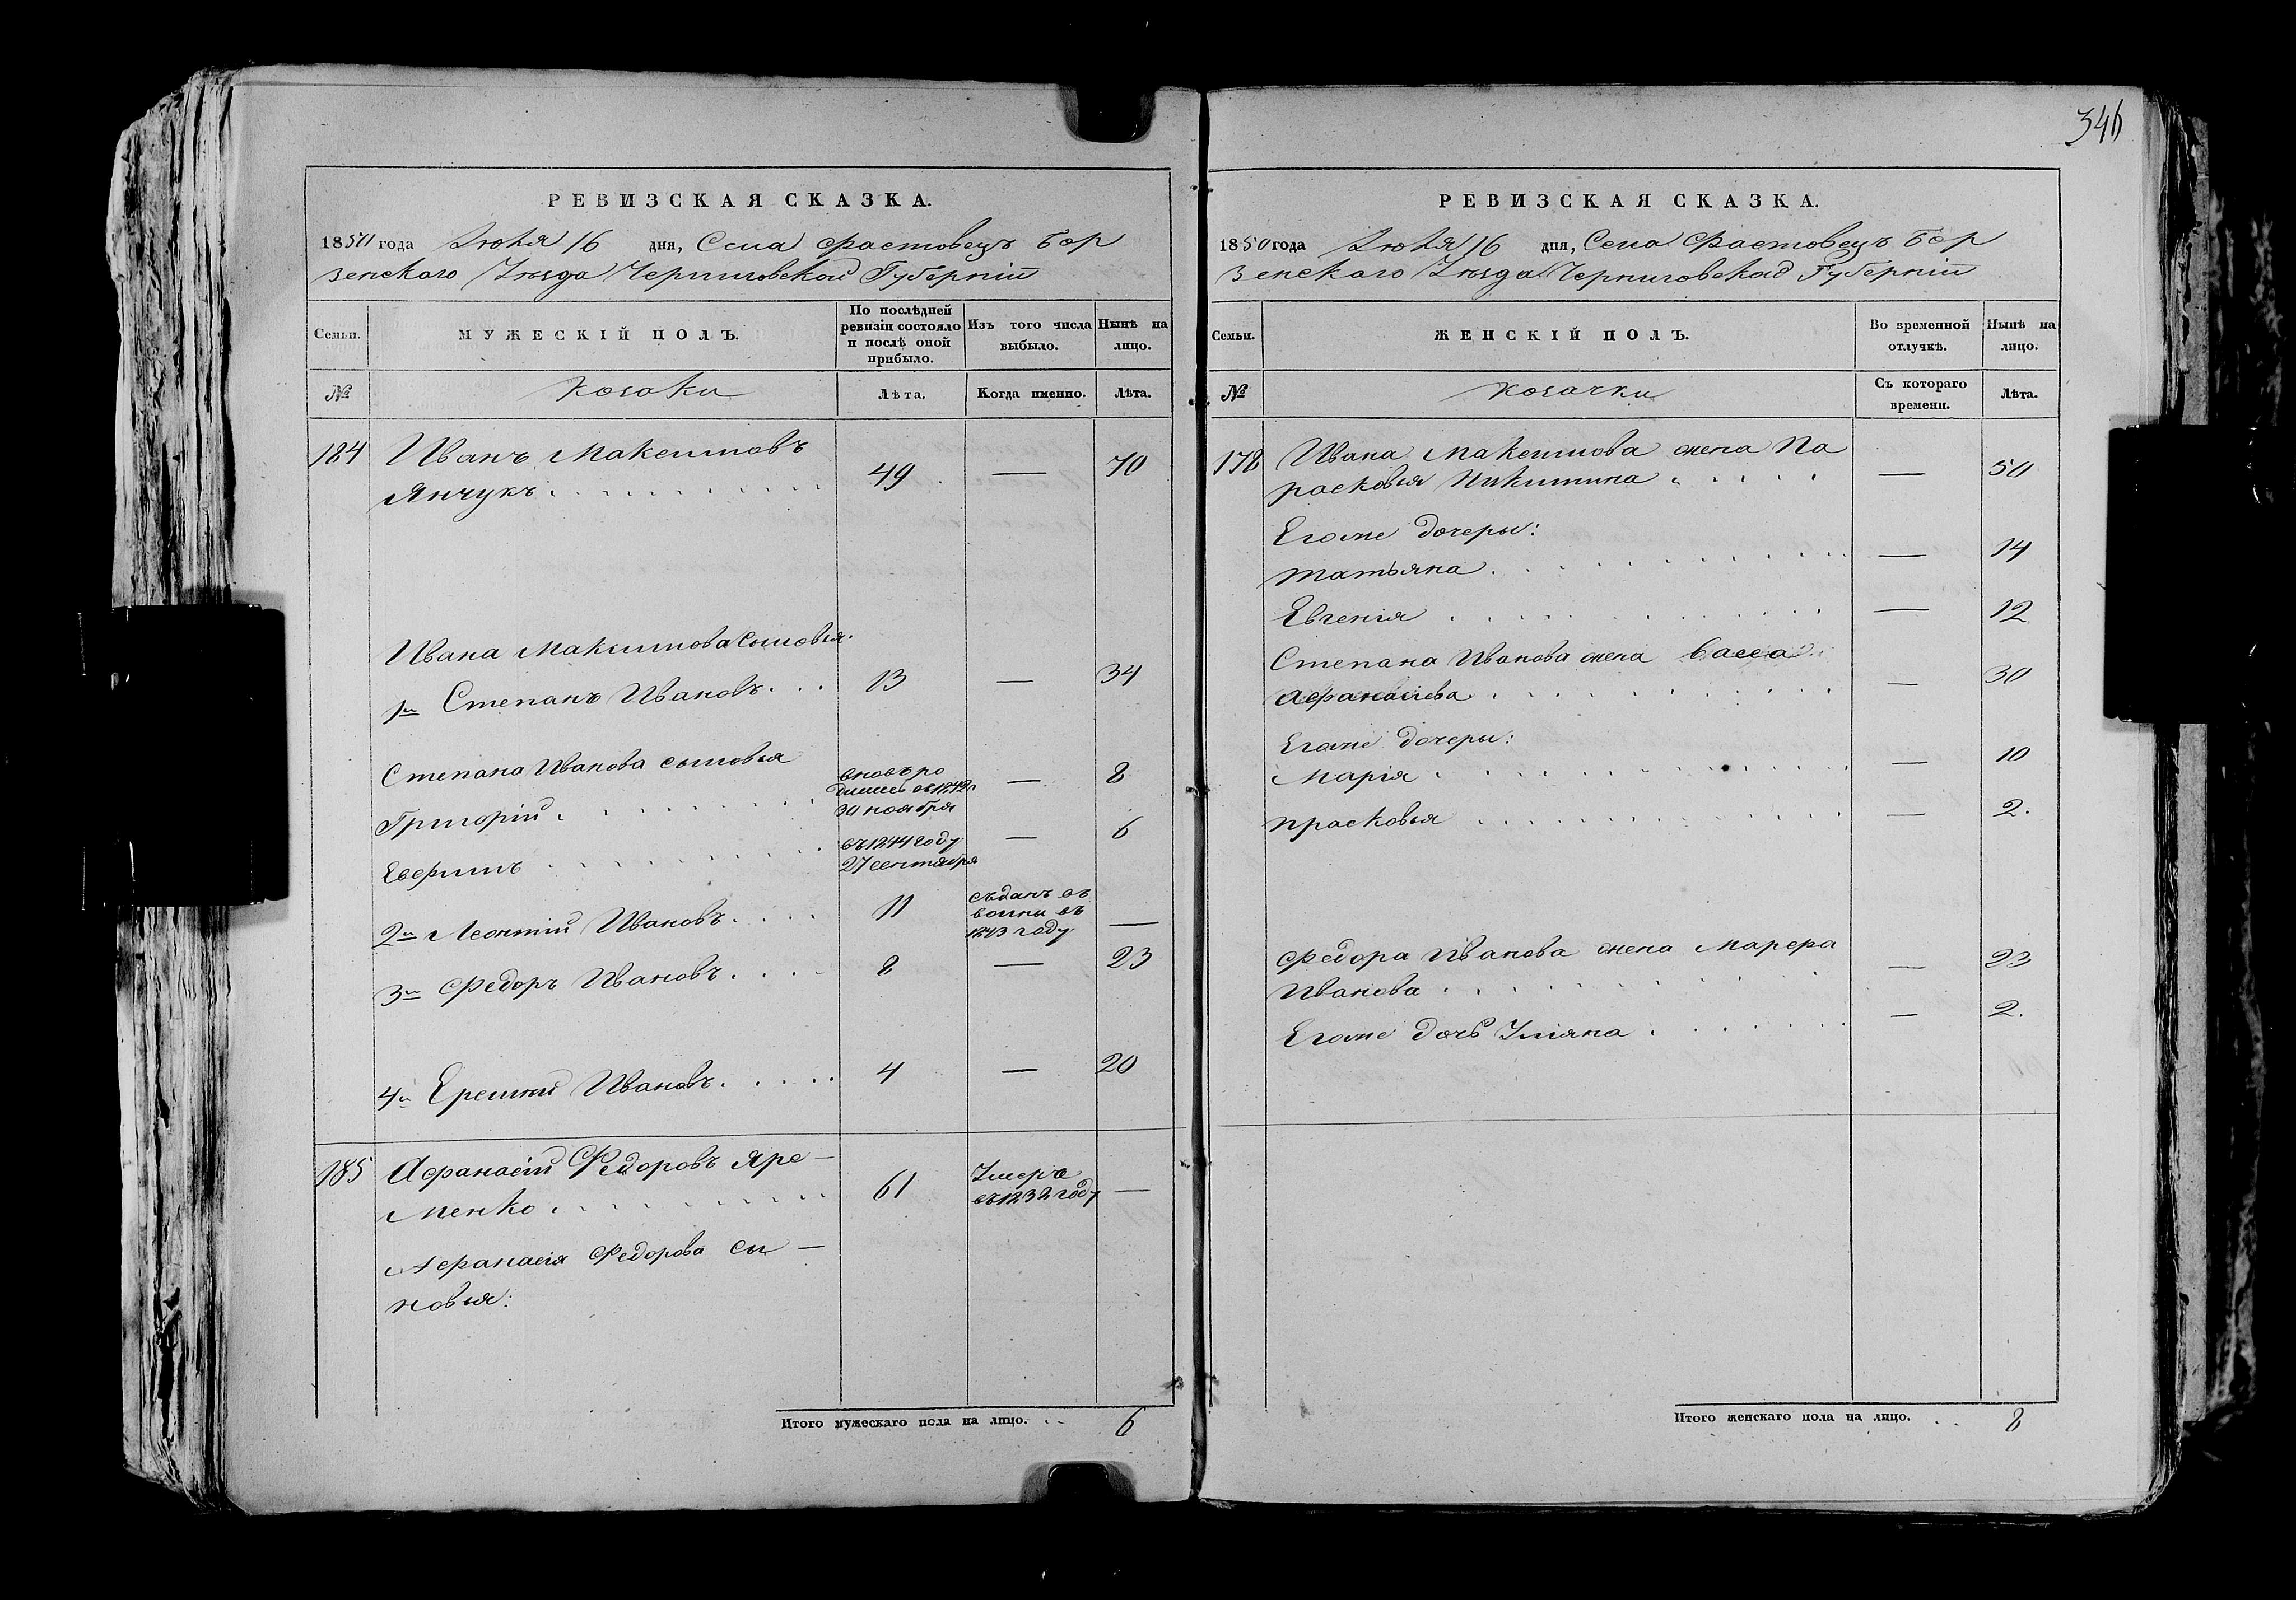 346
РЕВИЗСКАЯ СКАЗКА.
1850 года Июля 16 дня, Села Фастовецъ Бор
зенского Уѣзда Черниговской Губерніи
Семьи. МУЖЕСКІЙ ПОЛЪ. По послѣдней ревизіи состояло и послѣ оной прибыло. Изъ того числа выбыло. Нынѣ на лицо.
№ козаки Лѣта. Когда именно. Лѣта.
184 Иванъ Максимовъ
Янчукъ . . . 49 — 70
Ивана Максимова сыновья.
1й Степанъ Ивановъ . . . 13 — 34
Степана Иванова сыновья
Григорій . . . вновь ро
дился въ 1842г
30 ноября — 8
Ефимъ . . . въ 1844 году
27 сентября — 6
2й Леонтій Ивановъ . . . 11 съданъ въ
воины въ
1843 году —
3й Федоръ Ивановъ . . . 8 — 23
4й Еремій Ивановъ . . . 4 — 20
185 Афанасій Федоровъ Яре—
менко . . . 61 Умеръ
въ 1832 году —
Афанасія Федорова сы—
новья:
Итого мужескаго пола на лицо. . . 6
РЕВИЗСКАЯ СКАЗКА.
1850 года Июля 16 дня, Села Фастовецъ Бор
зенского Уѣзда Черниговской Губерніи
Семьи. ЖЕНСКІЙ ПОЛЪ. Во временной отлучкѣ. Нынѣ на лицо.
№ козачки Съ котораго времени. Лѣта.
178 Ивана Максимова жена Па
расковья Никитина . . . — 50
Егоже дочеры:
Татьяна . . . — 14
Евгенія . . . — 12
Степана Иванова жена Васса
Афанасіева . . . — 30
Егоже дочеры:
Марія . . . — 10
Прасковья . . . — 2.
Федора Иванова жена Марфа
Иванова . . . — 23
Егоже дочь Уліяна . . . — 2.
Итого женскаго пола на лицо. . . 8